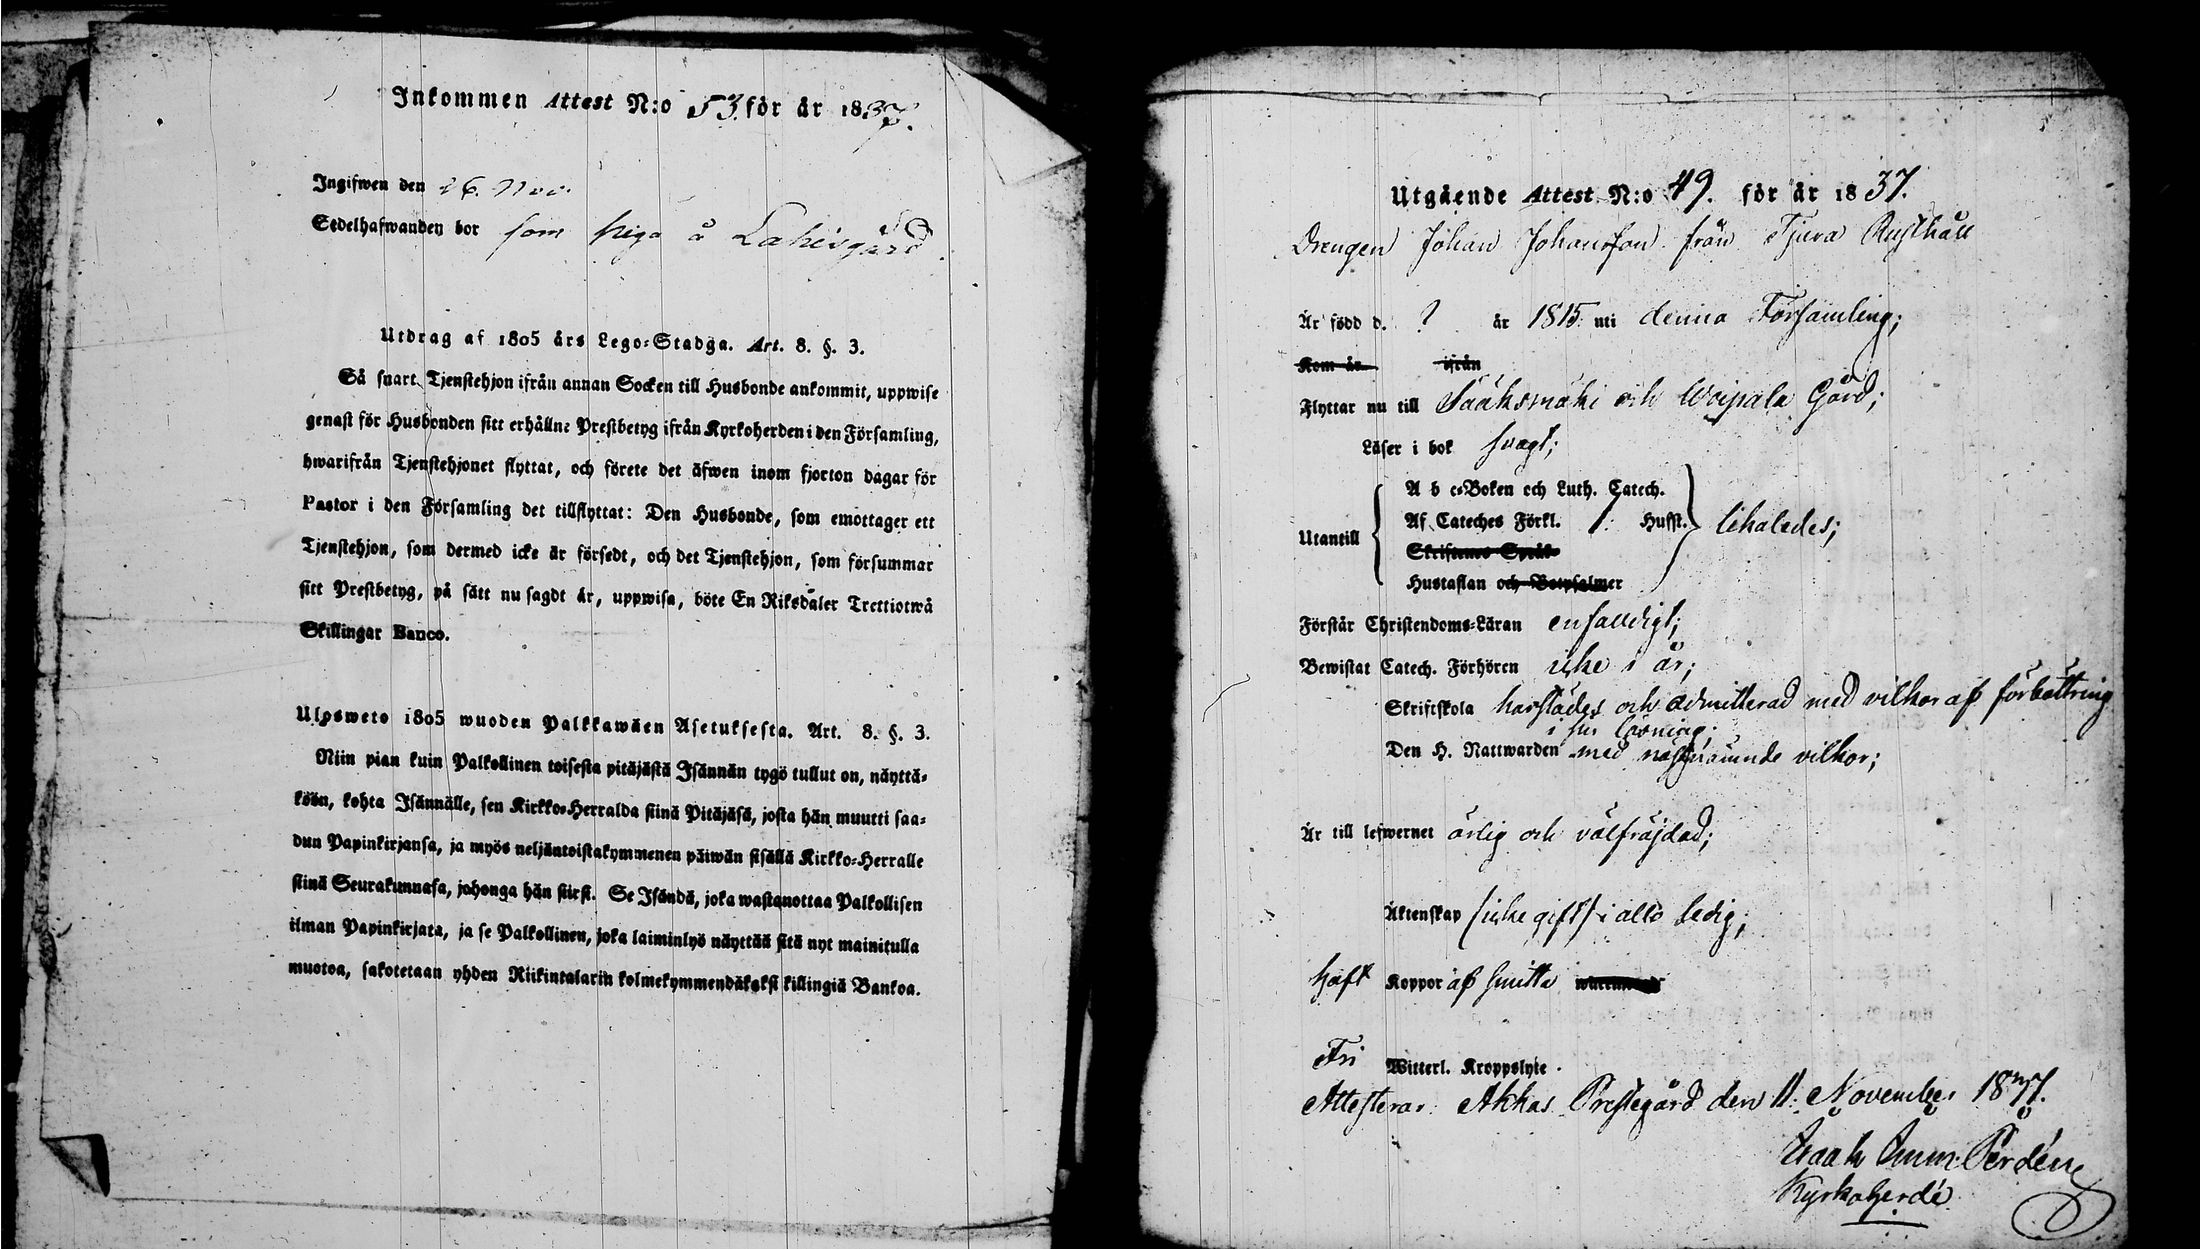 Inkommen Attest N:o 53. för år 1837.
Ingifwen den 26. Nov.
Sedelhafwanden bor som piga å Lahisgård
Utdrag af 1805 års Lego-Stadga. Art. 8. §. 3.
Så snart Tjenstehjon ifrån annan Socken till Husbonde ankommit, uppwise
genast för Husbonden sitt erhållne Prestbetyg ifrån Kyrkoherden i den Församling,
hwarifrån Tjenstehjonet flyttat, och förete det äfwen inom fjorton dagar för
Pastor i den Församling det tillflyttat: Den Husbonde, som emottager ett
Tjenstehjon, som dermed icke är försedt, och det Tjenstehjon, som försummar
sitt Prestbetyg, på sätt nu sagdt är, uppwisa, böte En Riksdaler Trettiotwå
Skillingar Banco.
Ulosweto 1805 wuoden Palkkawäen Asetuksesta. Art. 8. §. 3.
Niin pian kuin Palkollinen toisesta pitäjästä Isännän tygö tullut on, näyttä-
köön, kohta Isännälle, sen Kirkko-Herralda siinä Pitäjäsä, josta hän muutti saa-
dun Papinkirjansa, ja myös neljäntoistakymmenen päiwän sisällä Kirkko-Herralle
siinä Seurakunnasa, johonga hän siirsi. Se Isändä, joka wastanottaa Palkollisen
ilman Papinkirjata, ja se Palkollinen, joka laiminlyö näyttää sitä nyt mainitulla
muotoa, sakotetaan yhden Riikintalarin kolmekymmendäkaksi killingiä Bankoa.
Utgående Attest N:o 49. för år 1837.
Drengen Johan Johansson från Tjura Rusthåll
Är född d. ? år 1815 uti denna Församling;
Kom år ifrån
Flyttar nu till Sääksmäki och Woipala Gård;
Läser i bok svagt;
A b c-Boken och Luth. Catech.
Af Cateches Förkl. Husst.
Utantill likaledes;
Skriftenes Språk
Hustaflan och Botpsalmer
Förstår Christendoms-Läran enfaldigt;
Bewistat Catech. Förhören icke i år;
Skriftskola härstädes och admitterad med vilkor af förbättring
i sin läsning;
Den H. Nattwarden med nästnämnde vilkor;
Är till lefwernet ärlig och välfräjdad;
Äktenskap (icke gift) i allo ledig;
Haft Koppor af smitta
Fri Witterl. Kroppslyte.
Attesterar Akkas Prestegård den 11. November 1837.
Isaak Imm: Perdén
Kyrkoherde